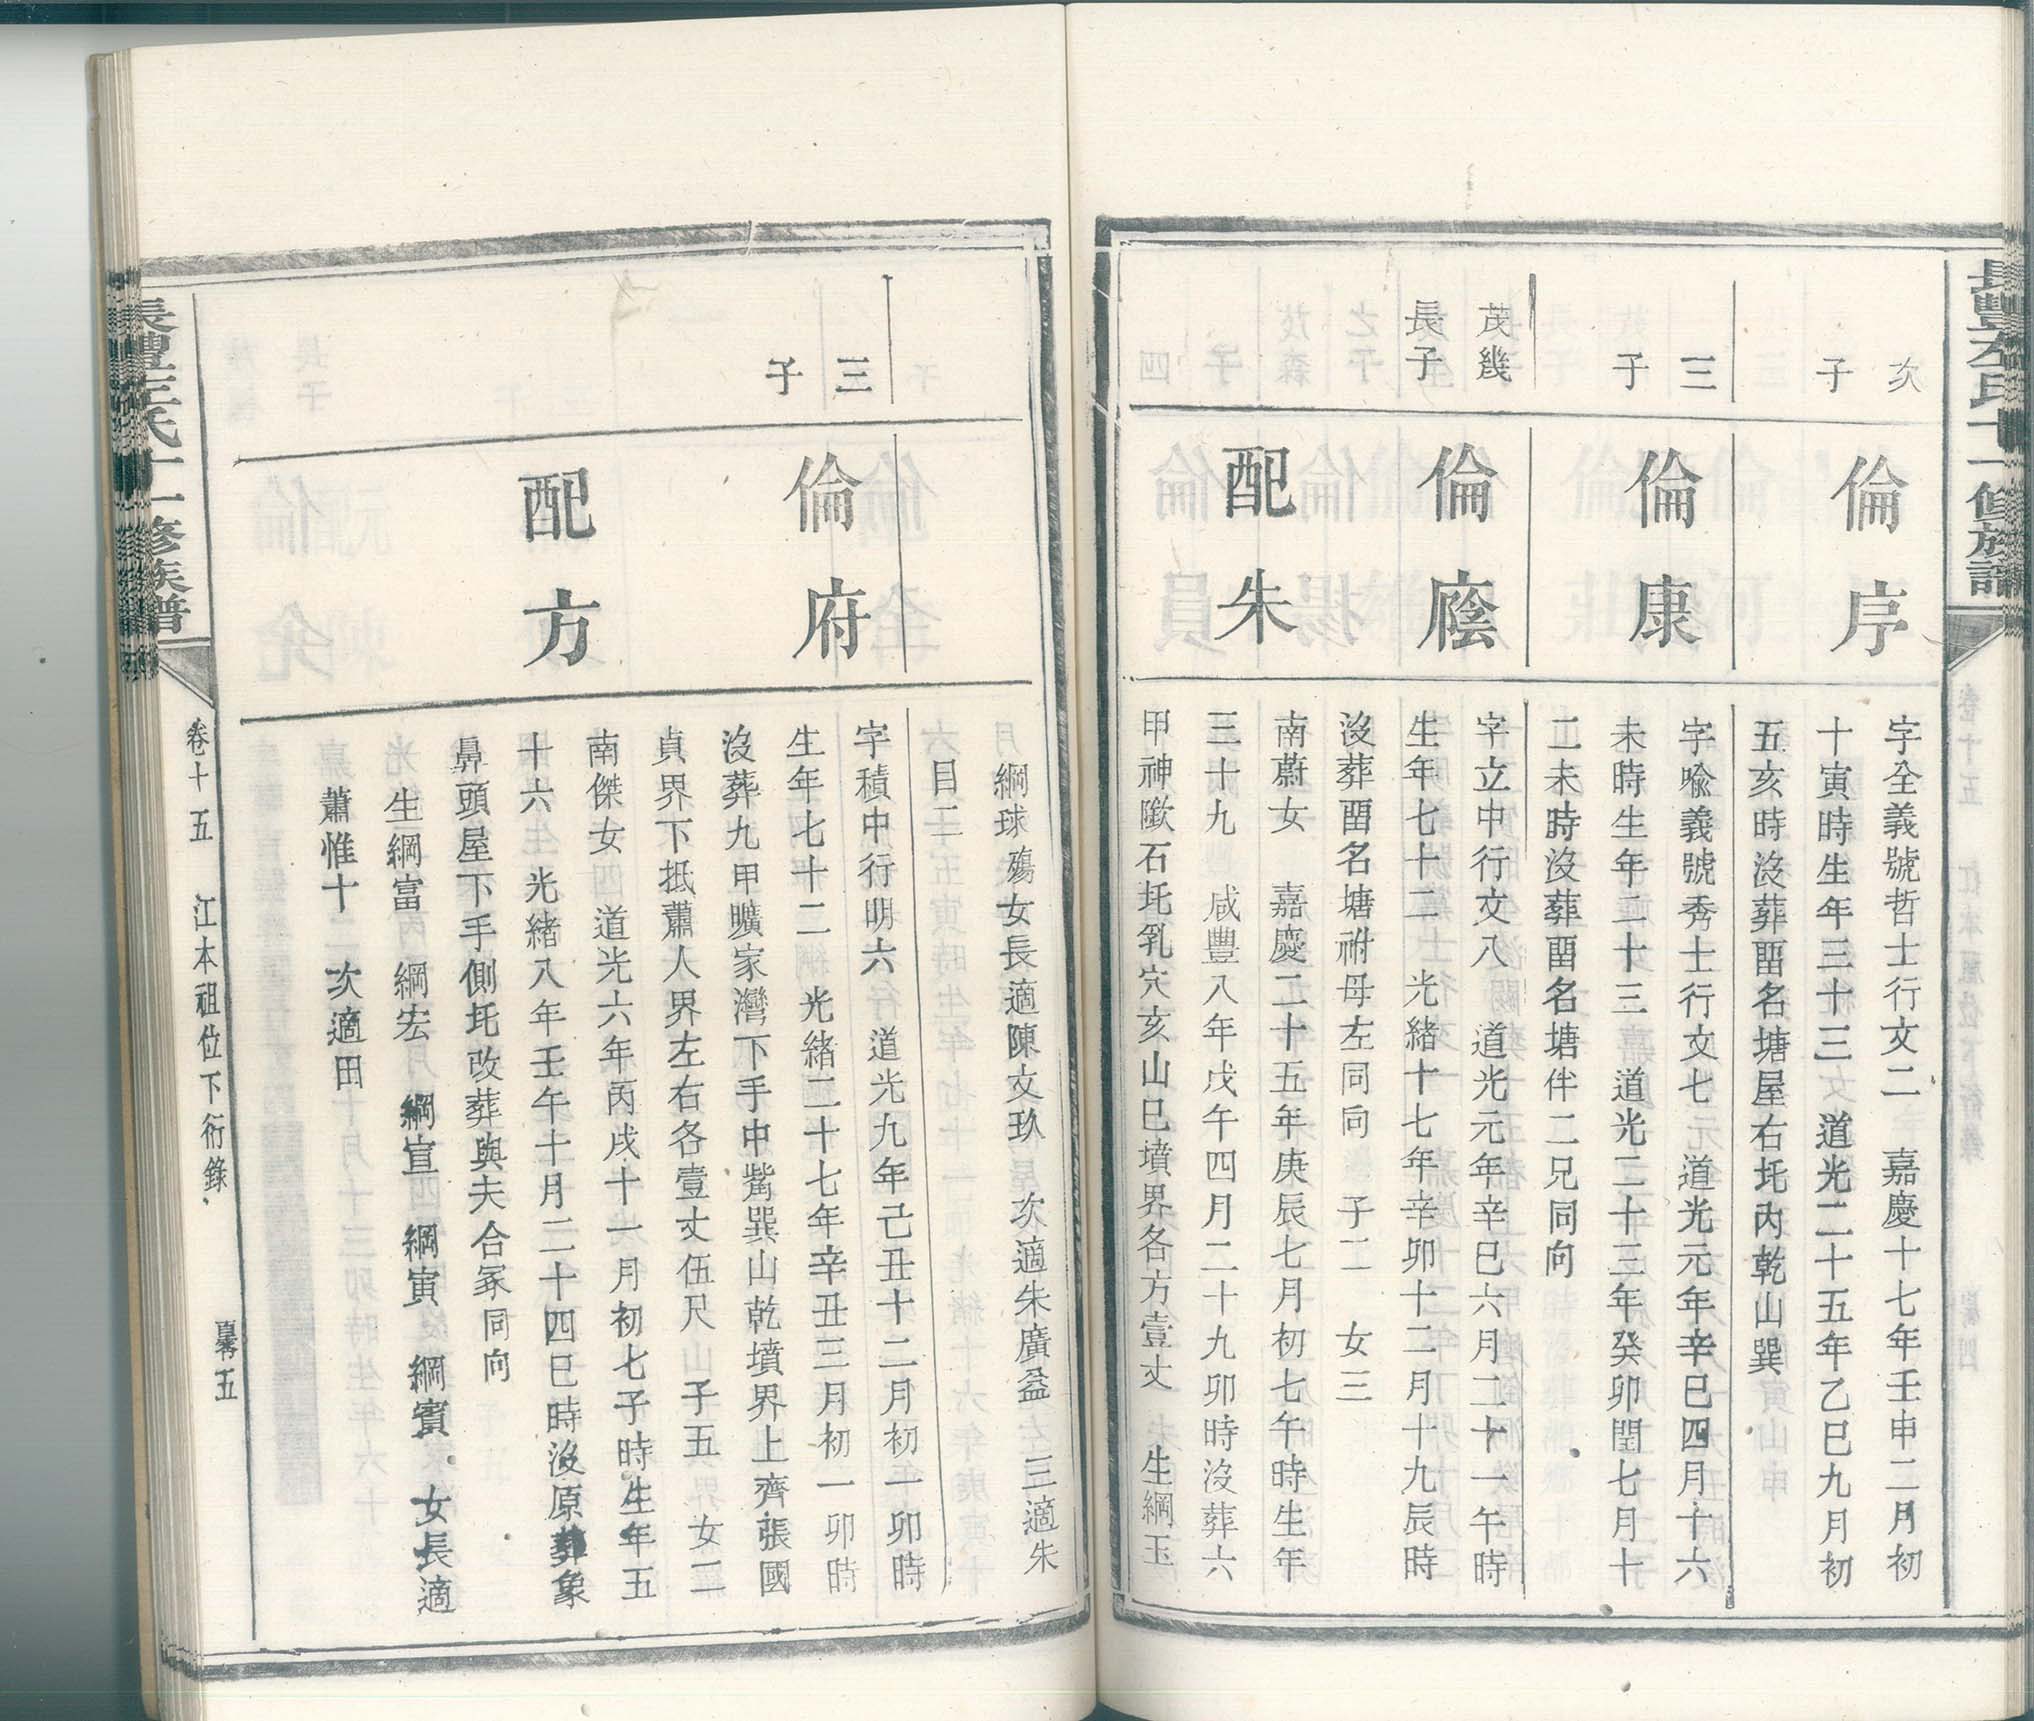 長豐左氏十一修族譜
次子
倫序
字全義號哲士行文二　嘉慶十七年壬申二月初
十寅時生年三十三　道光二十五年乙巳九月初
五亥時沒葬畱名塘屋右圫內乾山巽
三子
倫康
字喻義號秀士行文七　道光元年辛巳四月十六
未時生年二十三　道光二十三年癸卯閏七月十
二未時沒葬畱名塘伴二兄同向
茂幾
長子
倫廕
字立中行文八　道光元年辛巳六月二十一午時
生年七十二　光緒十七年辛卯十二月十九辰時
沒葬畱名塘祔母左同向　子二　女三
配朱
南蔚女　嘉慶二十五年庚辰七月初七午時生年
三十九　咸豐八年戊午四月二十九卯時沒葬六
甲神隞石圫乳穴亥山巳墳界各方壹丈　生綱玉
綱球殤女長適陳文玖　次適朱廣益　三適朱
目二
三子
倫府
字積中行明六　道光九年己丑十二月初一卯時
生年七十二　光緒二十七年辛丑三月初一卯時
沒葬九甲曠家灣下手中嵩巽山乾墳界上齊張國
貞界下抵蕭人界左右各壹丈伍尺　子五　女二
配方
南傑女　道光六年丙戌十一月初七子時生年五
十六　光緒八年壬午十月二十四巳時沒原葬象
鼻頭屋下手側圫改葬與夫合冢同向
生綱富　綱宏　綱宣　綱寅　綱賓　女長適
蕭惟十　次適田
長豐左氏十一修族譜
卷十五　江本祖位下衍錄
五